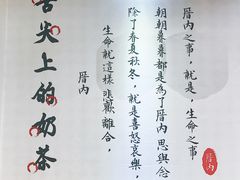 厝內之事，就是，生命之事
朝朝暮暮都是為了厝內 思與念
除了春夏秋冬，就是喜怒哀樂，
生命就這樣悲歡離合，
厝內
厝內
舌尖上的奶茶